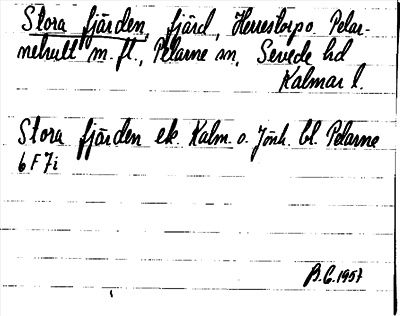 Stora fjärden, fjärd, Herrestorp o. Pelar-
nehult m.fl., Pelarne sn, Sevede hd
Kalmar l.
Stora fjärden ek. Kalm. o. Jönk. bl. Pelarne
6 F 7 i
B.G. 1957